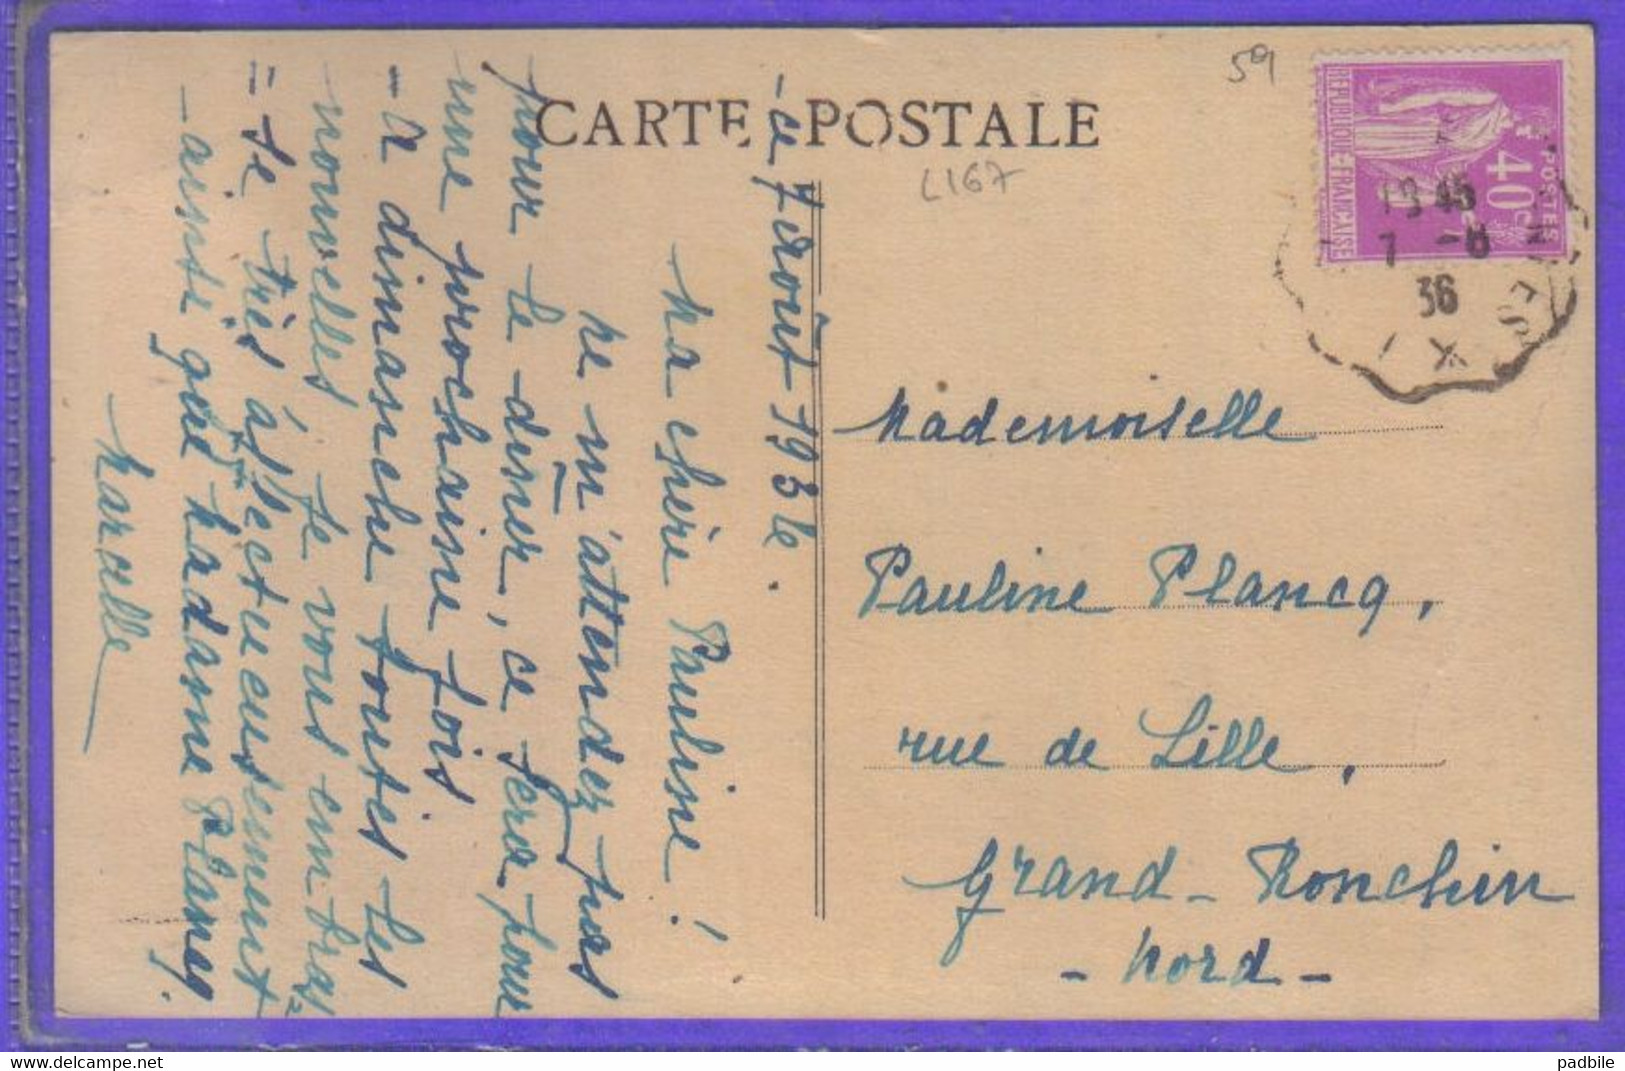 CARTE POSTALE
59
L167
RÉPUBLIQUE FRANÇAISE
POSTES
40c
19 45
7 -8
36
- ce 7 Août 1936.
Ma chère Pauline !
Ne m'attendez pas
pour le dîner, ce sera pour
une prochaine fois
- A dimanche toutes les
nouvelles. Je vous embras
= se très affectueusement
- ainsi que Madame Plancq.
Marcelle
Mademoiselle
Pauline Plancq,
rue de Lille,
Grand-Ronchin
- Nord -
delcampe.net
padbile